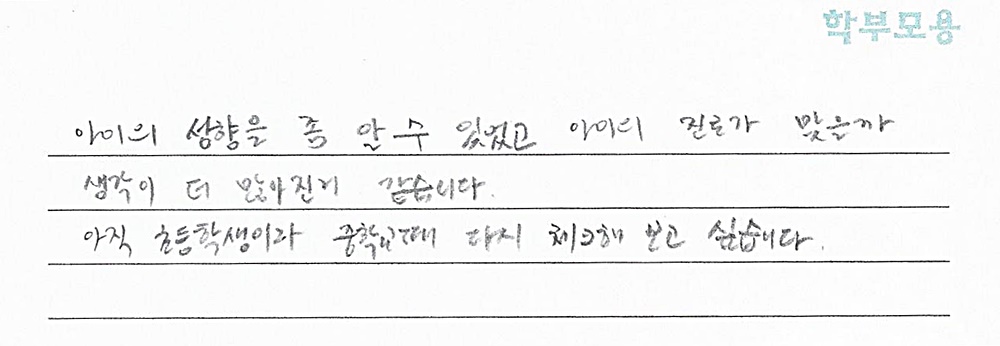 학부모용
아이의 성향을 좀 알 수 있었고 아이의 진로가 맞을까
생각이 더 많아진거 같습니다.
아직 초등학생이라 중학교때 다시 체크해 보고 싶습니다.